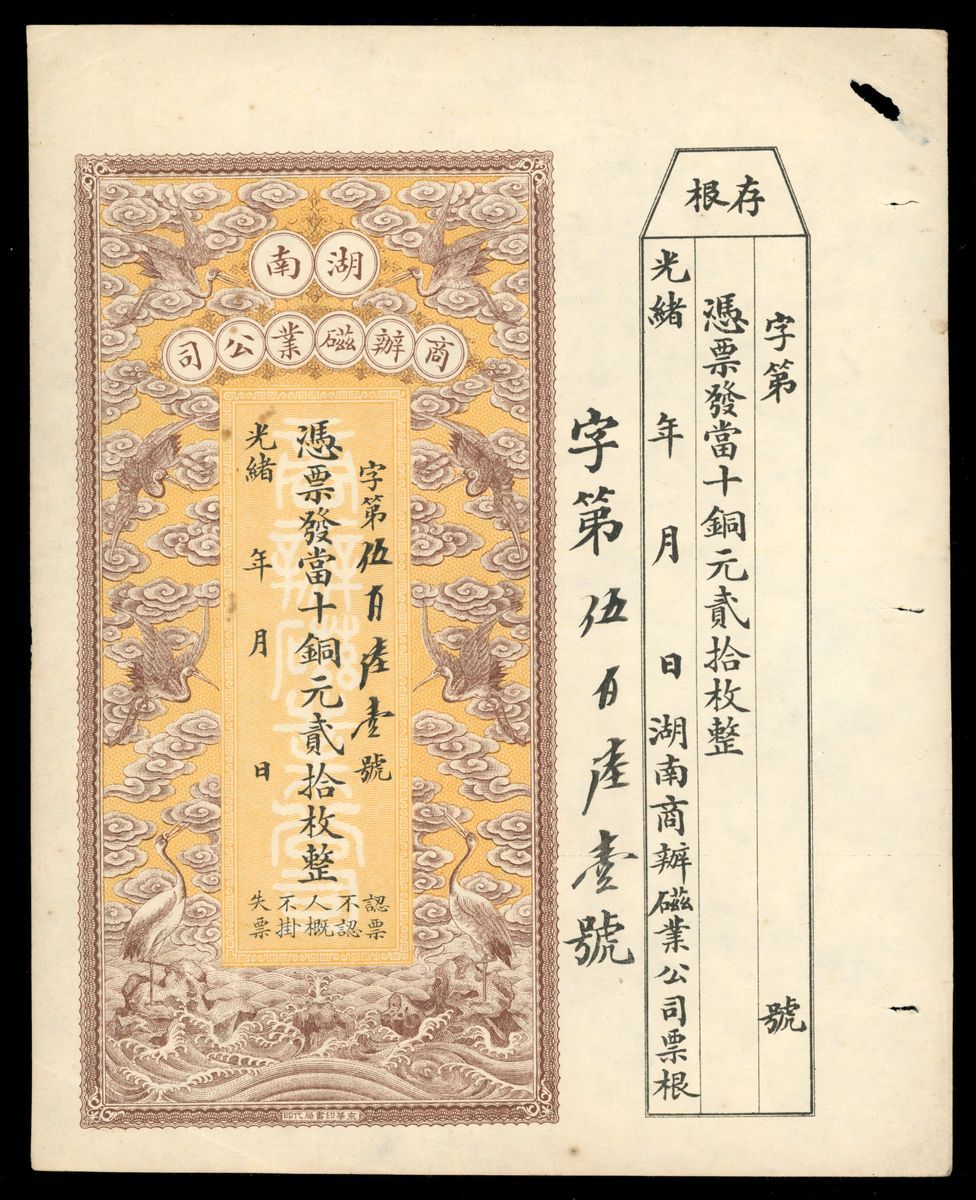 存根
字第 號
憑票發當十銅元貳拾枚整
光緒 年 月 日 湖南商辦磁業公司票根
字第伍百陸壹號
湖南
商辦磁業公司
字第伍百陸壹號
憑票發當十銅元貳拾枚整
商辦磁業公司
光緒 年 月 日
認票
不認
人概
不掛
失票
京華印書局代印